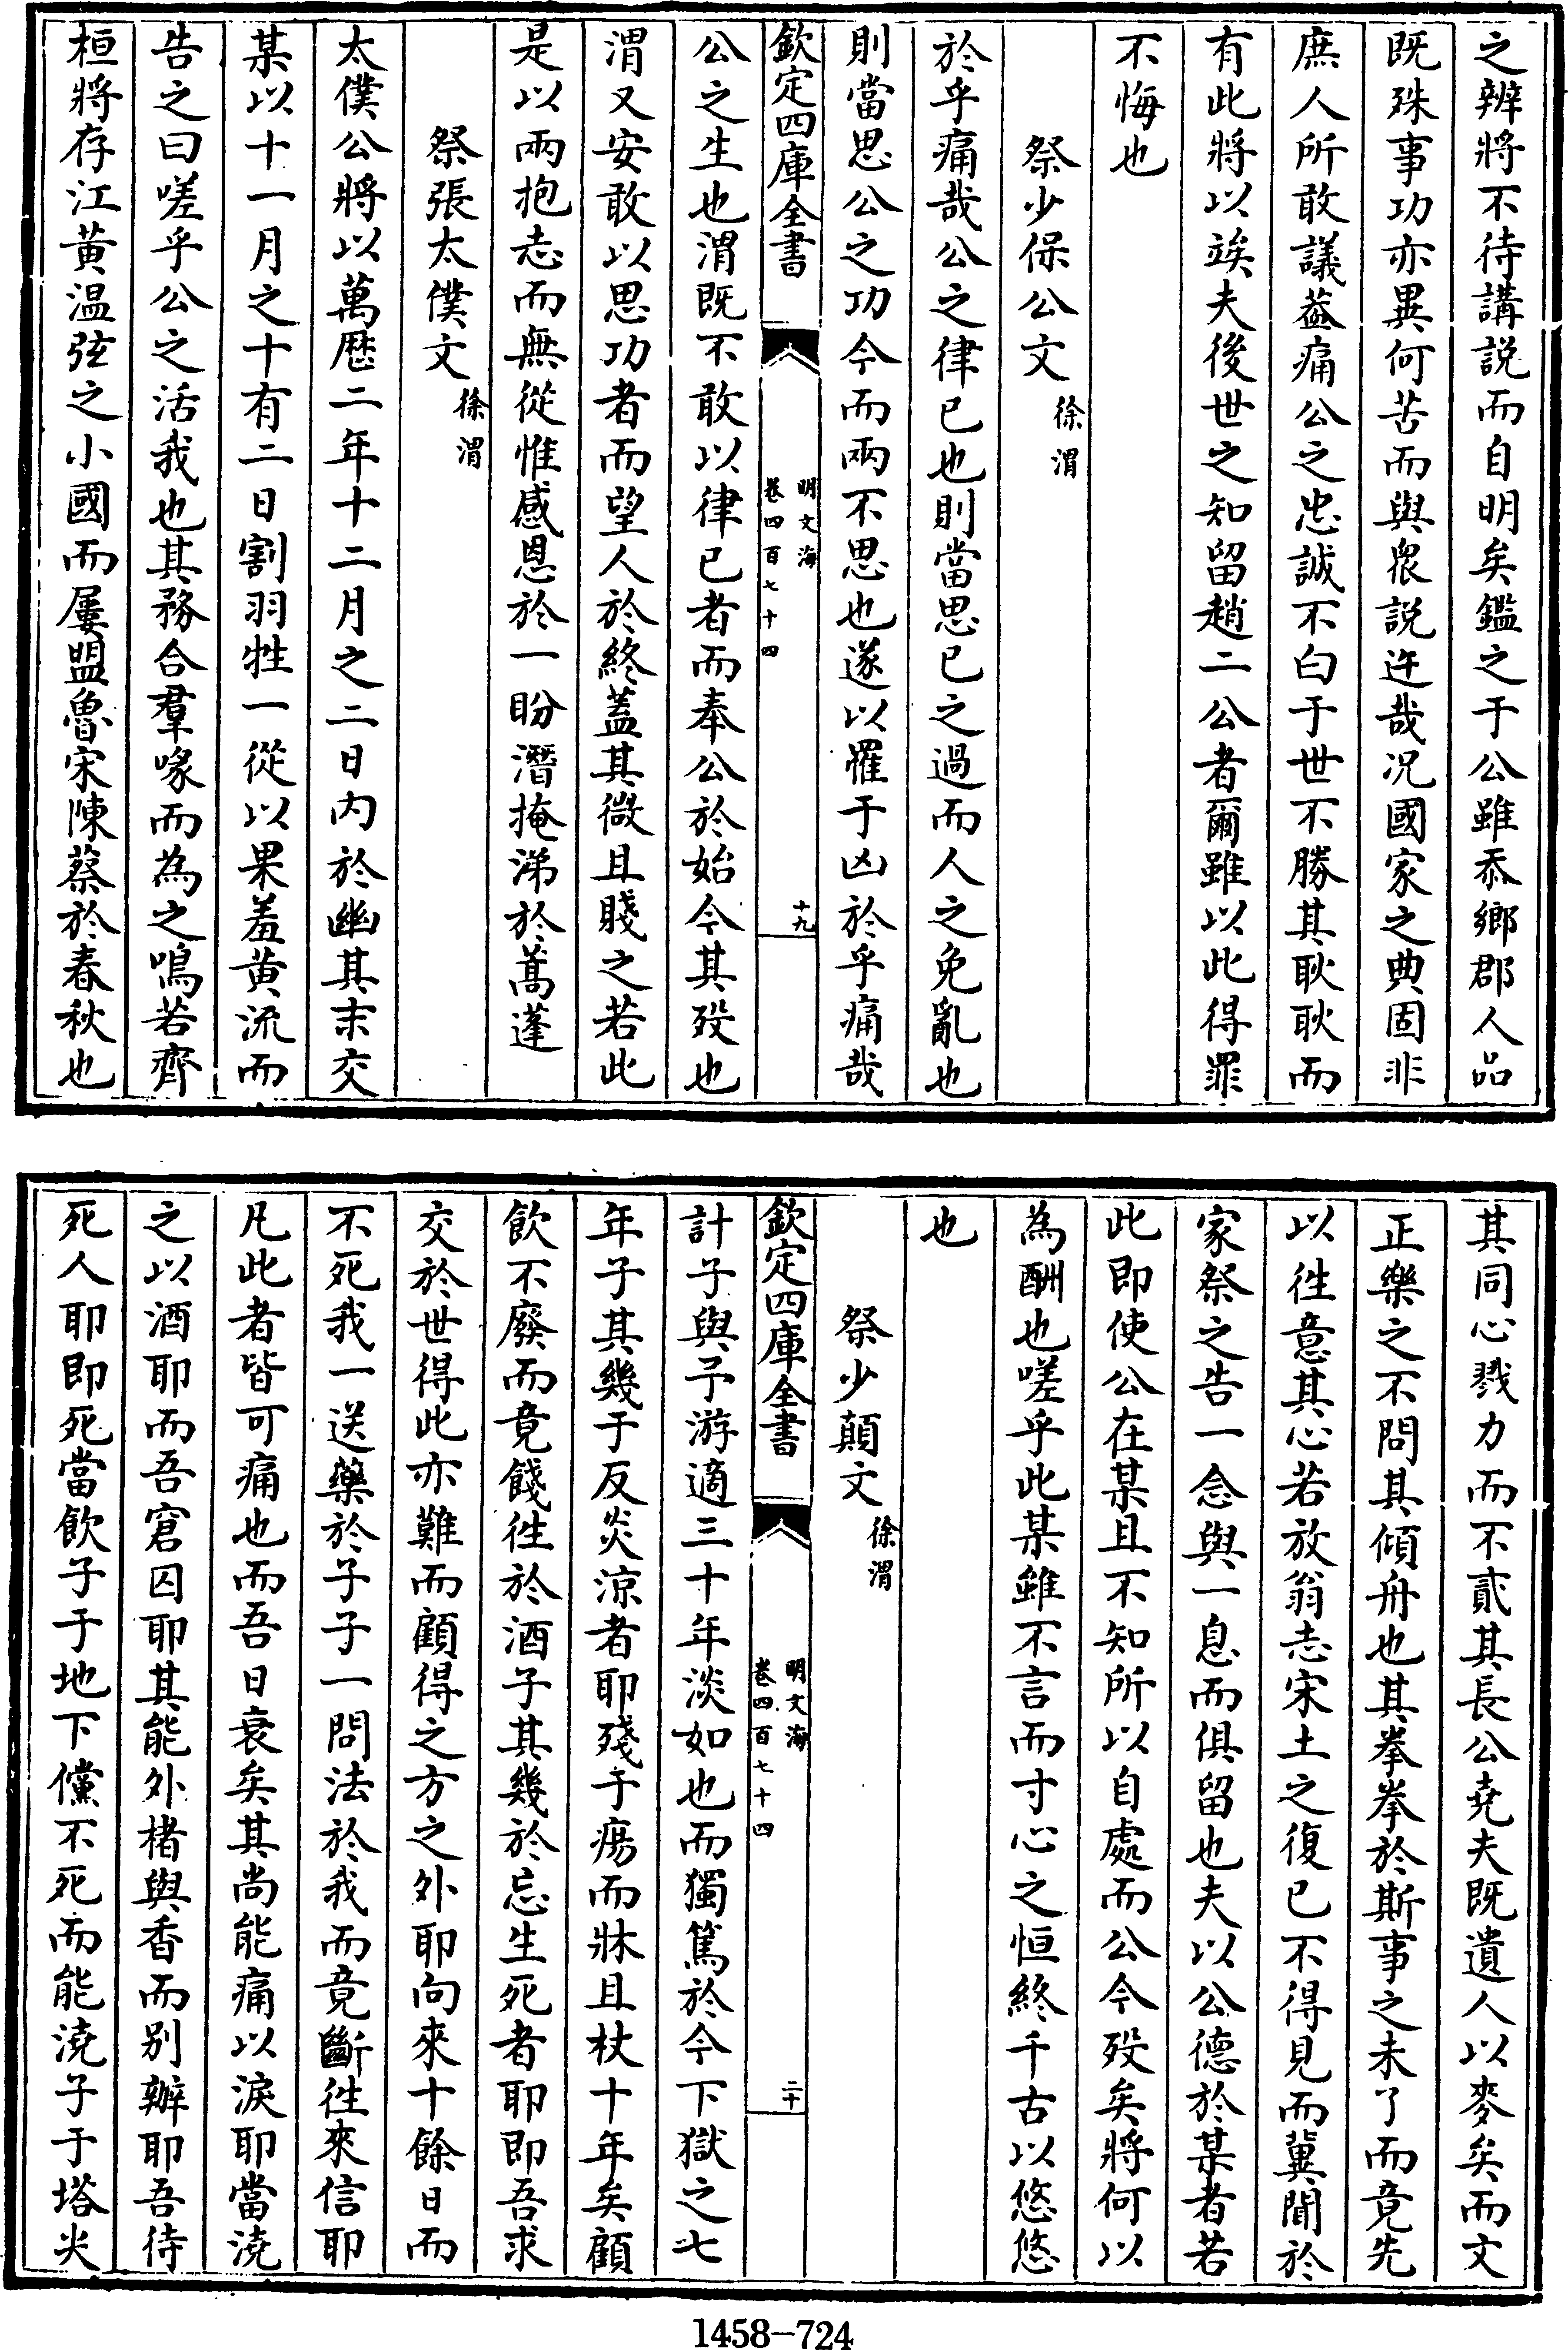 之辨將不待講説而自明矣鑑之于公雖忝鄉郡人品
既殊事功亦異何苦而與衆説迕哉况國家之典固非
庶人所敢議葢痛公之忠誠不白于世不勝其耿耿而
有此將以竢夫後世之知留趙二公者爾雖以此得罪
不悔也
祭少保公文 徐渭
於乎痛哉公之律已也則當思已之過而人之免亂也
則當思公之功今而兩不思也遂以罹于凶於乎痛哉
欽定四庫全書 明文海 卷四百七十四 十九
公之生也渭既不敢以律已者而奉公於始今其殁也
渭又安敢以思功者而望人於終蓋其微且賤之若此
是以兩抱志而無從惟感恩於一盼潛掩涕於蒿蓬
祭張太僕文 徐渭
太僕公將以萬厯二年十二月之二日内於幽其末交
某以十一月之十有二日割羽牲一從以果羞黄流而
告之曰嗟乎公之活我也其務合羣喙而為之鳴若齊
桓將存江黄温弦之小國而屢盟魯宋陳蔡於春秋也
其同心戮力而不貳其長公堯夫既遺人以麥矣而文
正樂之不問其傾舟也其拳拳於斯事之未了而竟先
以徃意其心若放翁志宋土之復已不得見而冀聞於
家祭之告一念與一息而俱留也夫以公德於某者若
此即使公在某且不知所以自處而公今殁矣將何以
為酬也嗟乎此某雖不言而寸心之恒終千古以悠悠
也
祭少顛文 徐渭
欽定四庫全書 明文海 卷四百七十四 二十
計子與予游適三十年淡如也而獨篤於今下獄之七
年子其幾于反炎涼者耶殘于瘍而牀且杖十年矣顧
飲不廢而竟餞徃於酒子其幾於忘生死者耶即吾求
交於世得此亦難而顧得之方之外耶向來十餘日而
不死我一送藥於子子一問法於我而竟斷徃來信耶
凡此者皆可痛也而吾日衰矣其尚能痛以淚耶當澆
之以酒耶而吾窘囚耶其能外楮與香而别辦耶吾待
死人耶即死當飲子于地下儻不死而能澆子于塔尖
1458-724